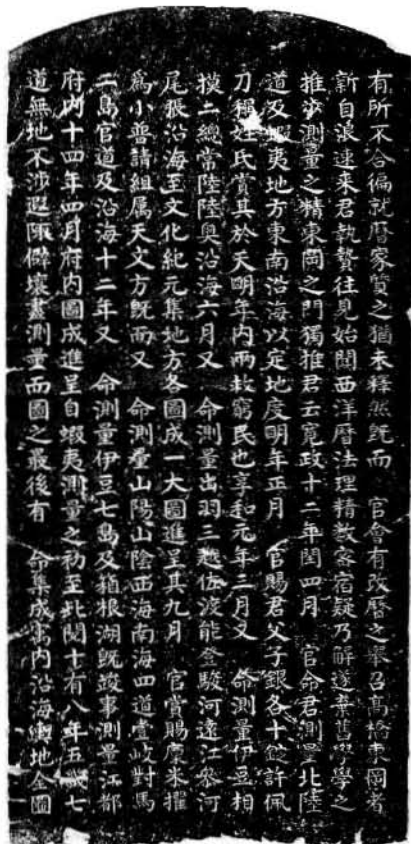 有所不合徧就曆家質之猶未釋然既而　官會有改曆之舉召髙橋東岡者
新自浪速来君執贄往見始聞西洋曆法理精数密宿疑乃解遂棄舊學學之
推步測量之精東岡之門獨推君云寛政十二年閏四月　官命君測量北陸
道及蝦夷地方東南沿海以定地度明年正月　官賜君父子銀各十錠許佩
刀稱姓氏賞其於天明年内兩救窮民也享和元年三月又　命測量伊豆相
摸二總常陸陸奥沿海六月又　命測量出羽三越佐渡能登駿河遠江參河
尾張沿海至文化紀元集地方各圖成一大圖進呈其九月　官賞賜廩米擢
為小普請組属天文方既而又　命測量山陽山陰西海南海四道壹岐對馬
二島官道及沿海十二年又　命測量伊豆七島及箱根湖既竣事測量江都
府内十四年四月府内圖成進呈自蝦夷測量之初至此閲十有八年五畿七
道無地不渉遐陬僻壤盡測量而圖之最後有　命集成寓内沿海輿地全圖